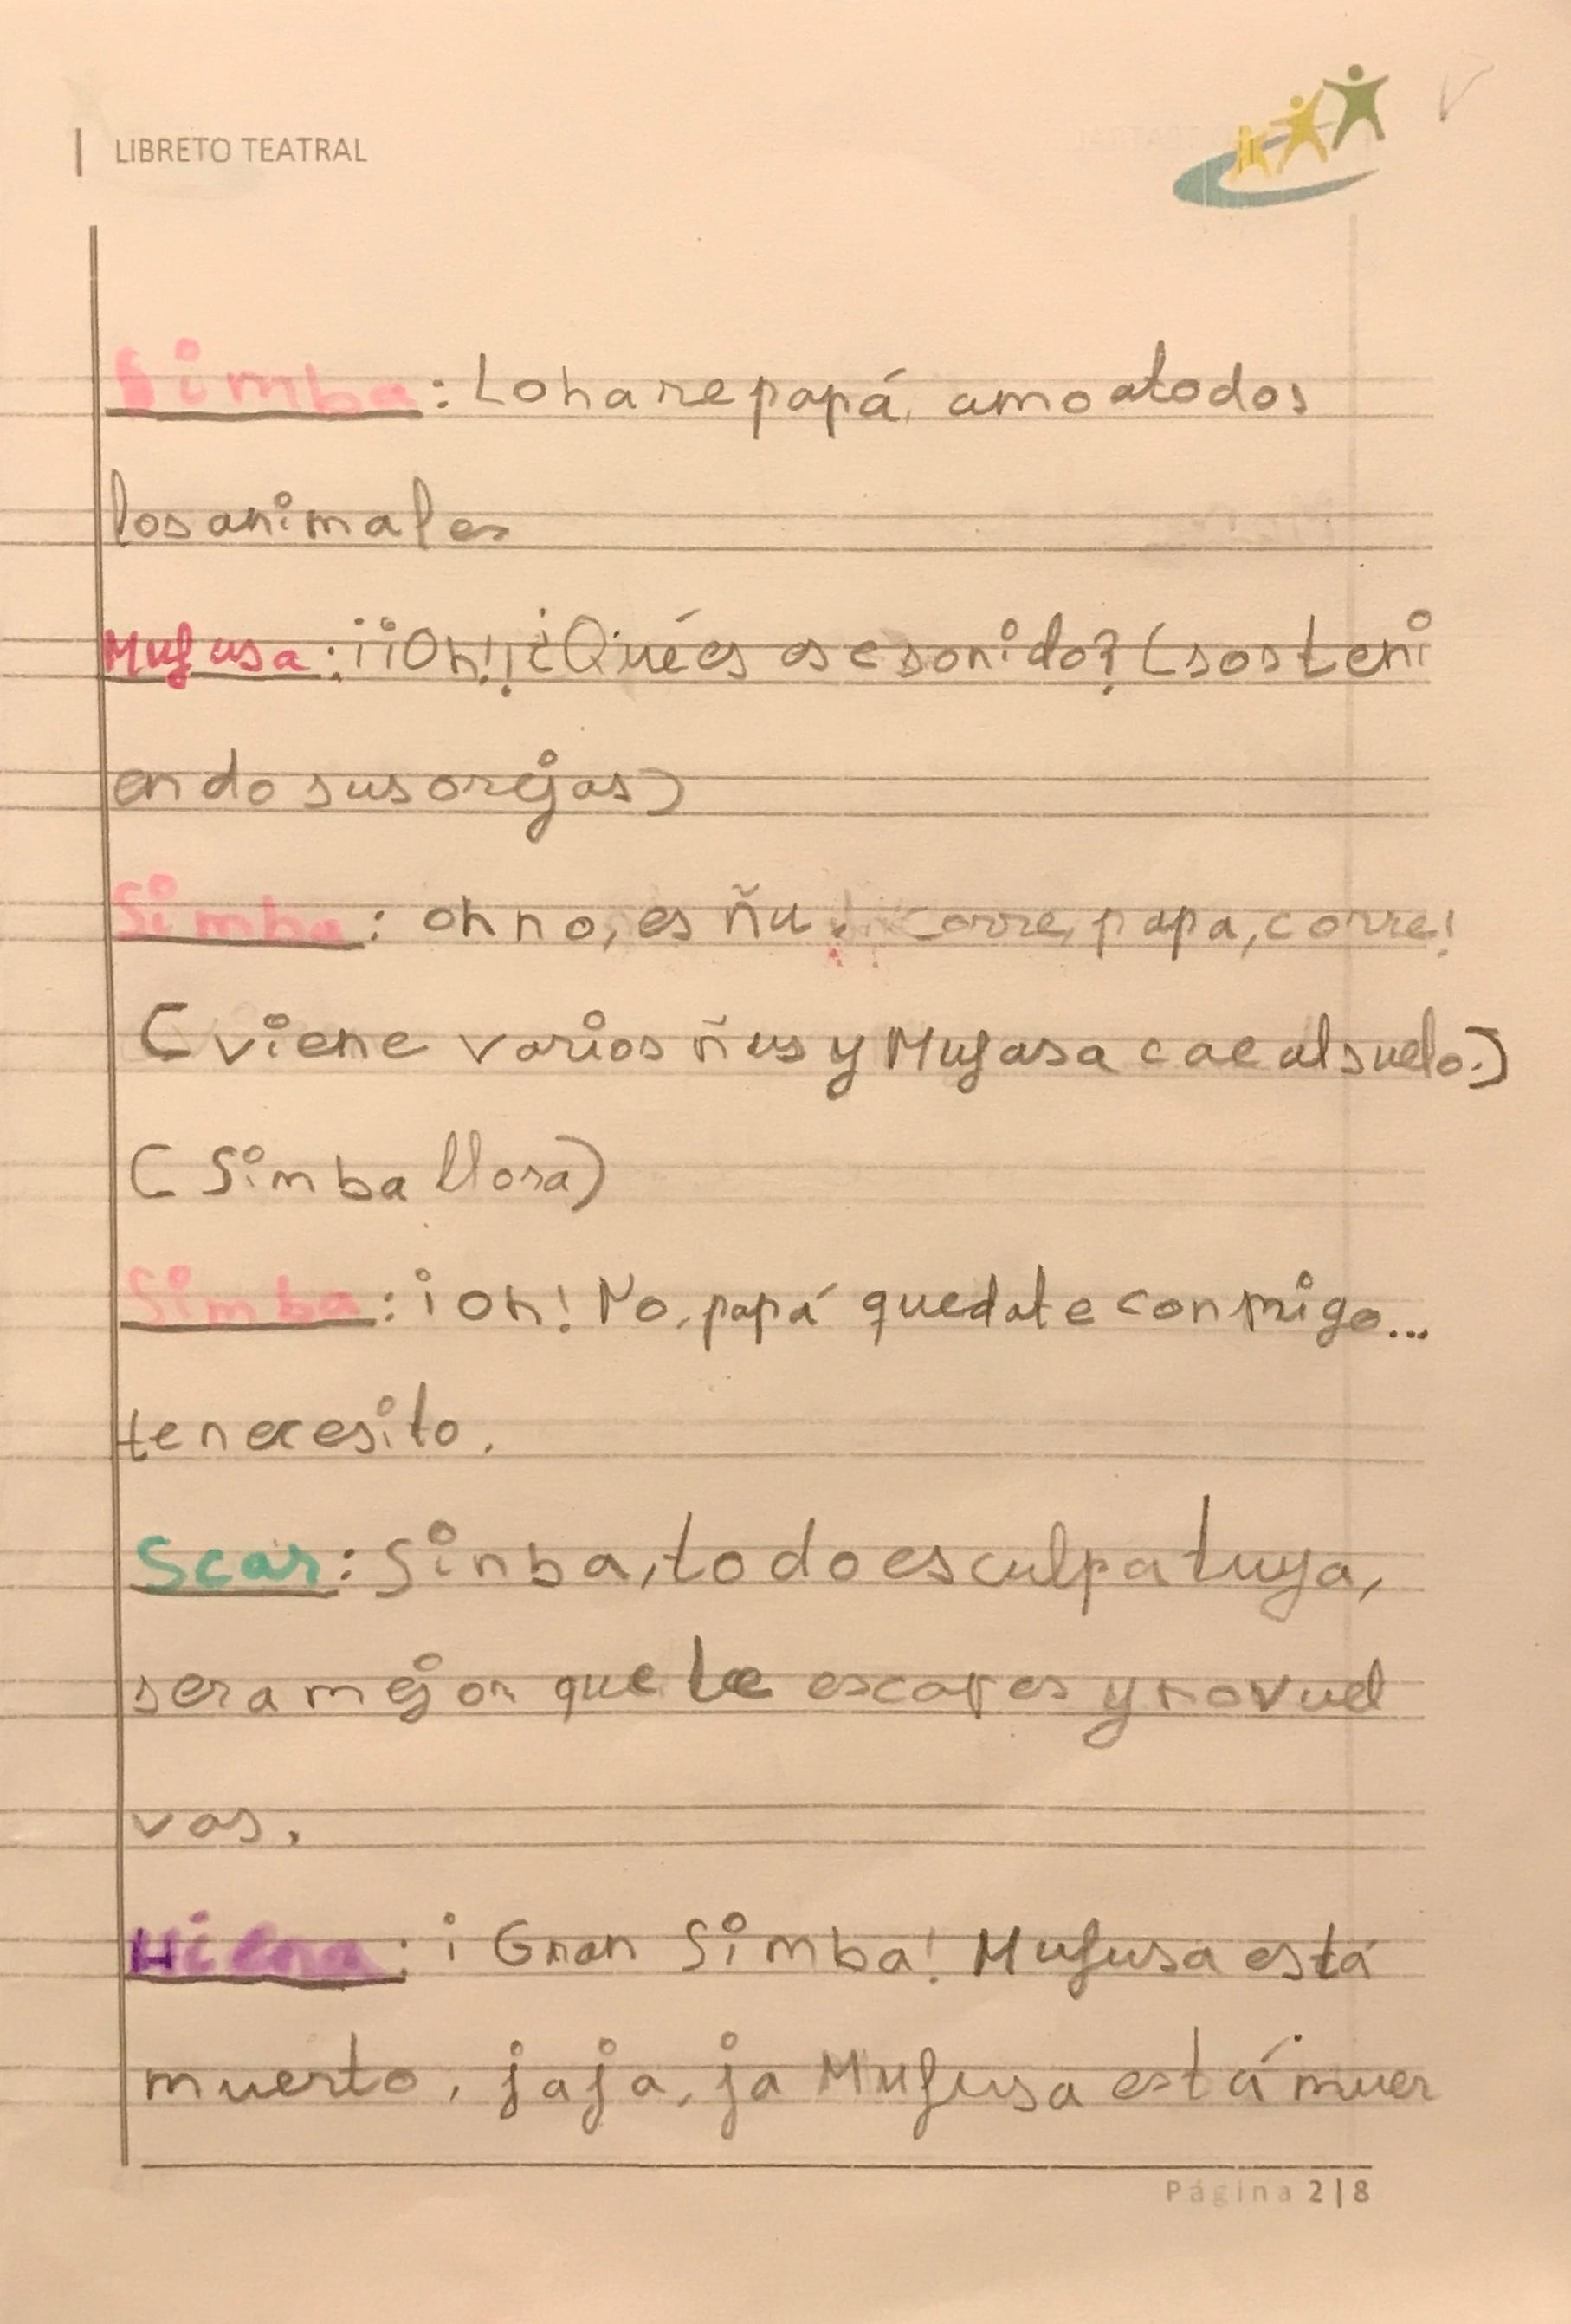 LIBRETO TEATRAL
Simba: Lo hare papá, amo a todos
los animales
Mufusa: ¡¡Oh!! ¿Qué es ese sonido? (sosteni
endo sus orejas)
Simba: oh no, es ñu. ¡corre, papa, corre!
(viene varios ñus y Mufasa cae al suelo.)
(Simba llora)
Simba: ¡Oh! No, papá quedate conmigo...
te necesito.
Scar: Sinba, todo es culpa tuya,
sera mejor que te escapes y no vuel
vas.
Hiena: ¡Gran Simba! Mufusa está
muerto, jaja, ja Mufusa está muer
Página 2|8